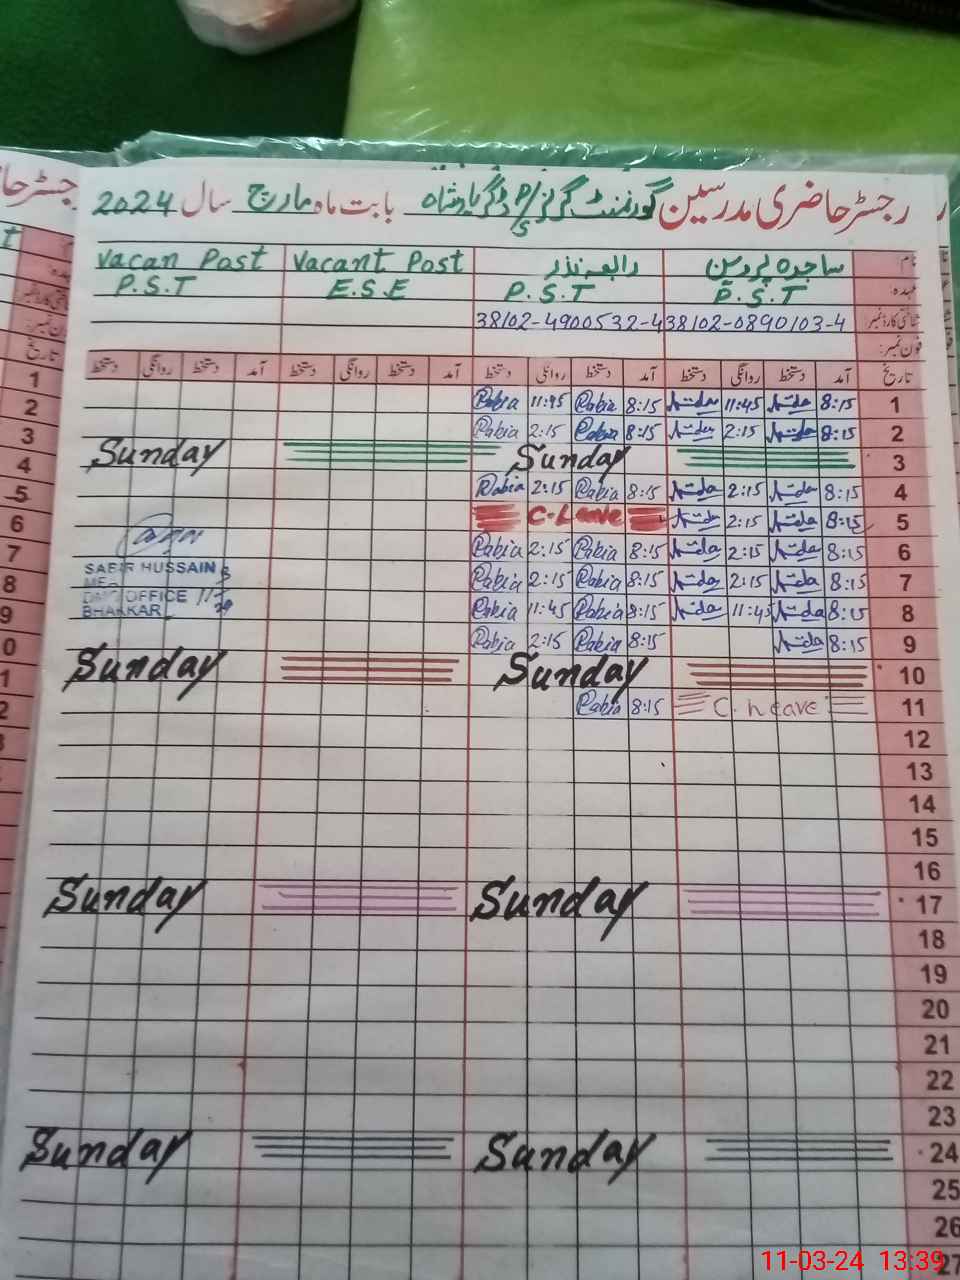 رجسٹر حاضری مدرسین گورنمنٹ گرلز P/S ڈگر یادشاہ بابت ماہ مارچ سال 2024
نام ساجدہ پروین رابعہ نذر Vacant Post Vacan Post
عہدہ: P.S.T P.S.T E.S.E P.S.T
شناختی کارڈ نمبر 38102-0890103-4 38102-4900532-4
فون نمبر:
تاریخ آمد دستخط روانگی دستخط آمد دستخط روانگی دستخط آمد دستخط روانگی دستخط آمد دستخط روانگی دستخط تاریخ
1 8:15 11:45 8:15 Rabia 11:45 Rabia 1
2 8:15 2:15 8:15 Rabia 2:15 Rabia 2
3 Sunday Sunday 3
4 8:15 2:15 8:15 Rabia 2:15 Rabia 4
5 8:15 2:15 C-Leave 5
6 8:15 2:15 8:15 Rabia 2:15 Rabia 6
7 8:15 2:15 8:15 Rabia 2:15 Rabia 7
8 8:15 11:45 8:15 Rabia 11:45 Rabia 8
9 8:15 8:15 Rabia 2:15 Rabia 9
10 Sunday Sunday 0
11 C. Leave 8:15 Rabia 1
12 2
13
14
15
16
17 Sunday Sunday
18
19
20
21
22
23
24 Sunday Sunday
25
26
27
SABIR HUSSAIN
MEA
OFFICE
BHAKKAR
11-03-24 13:39